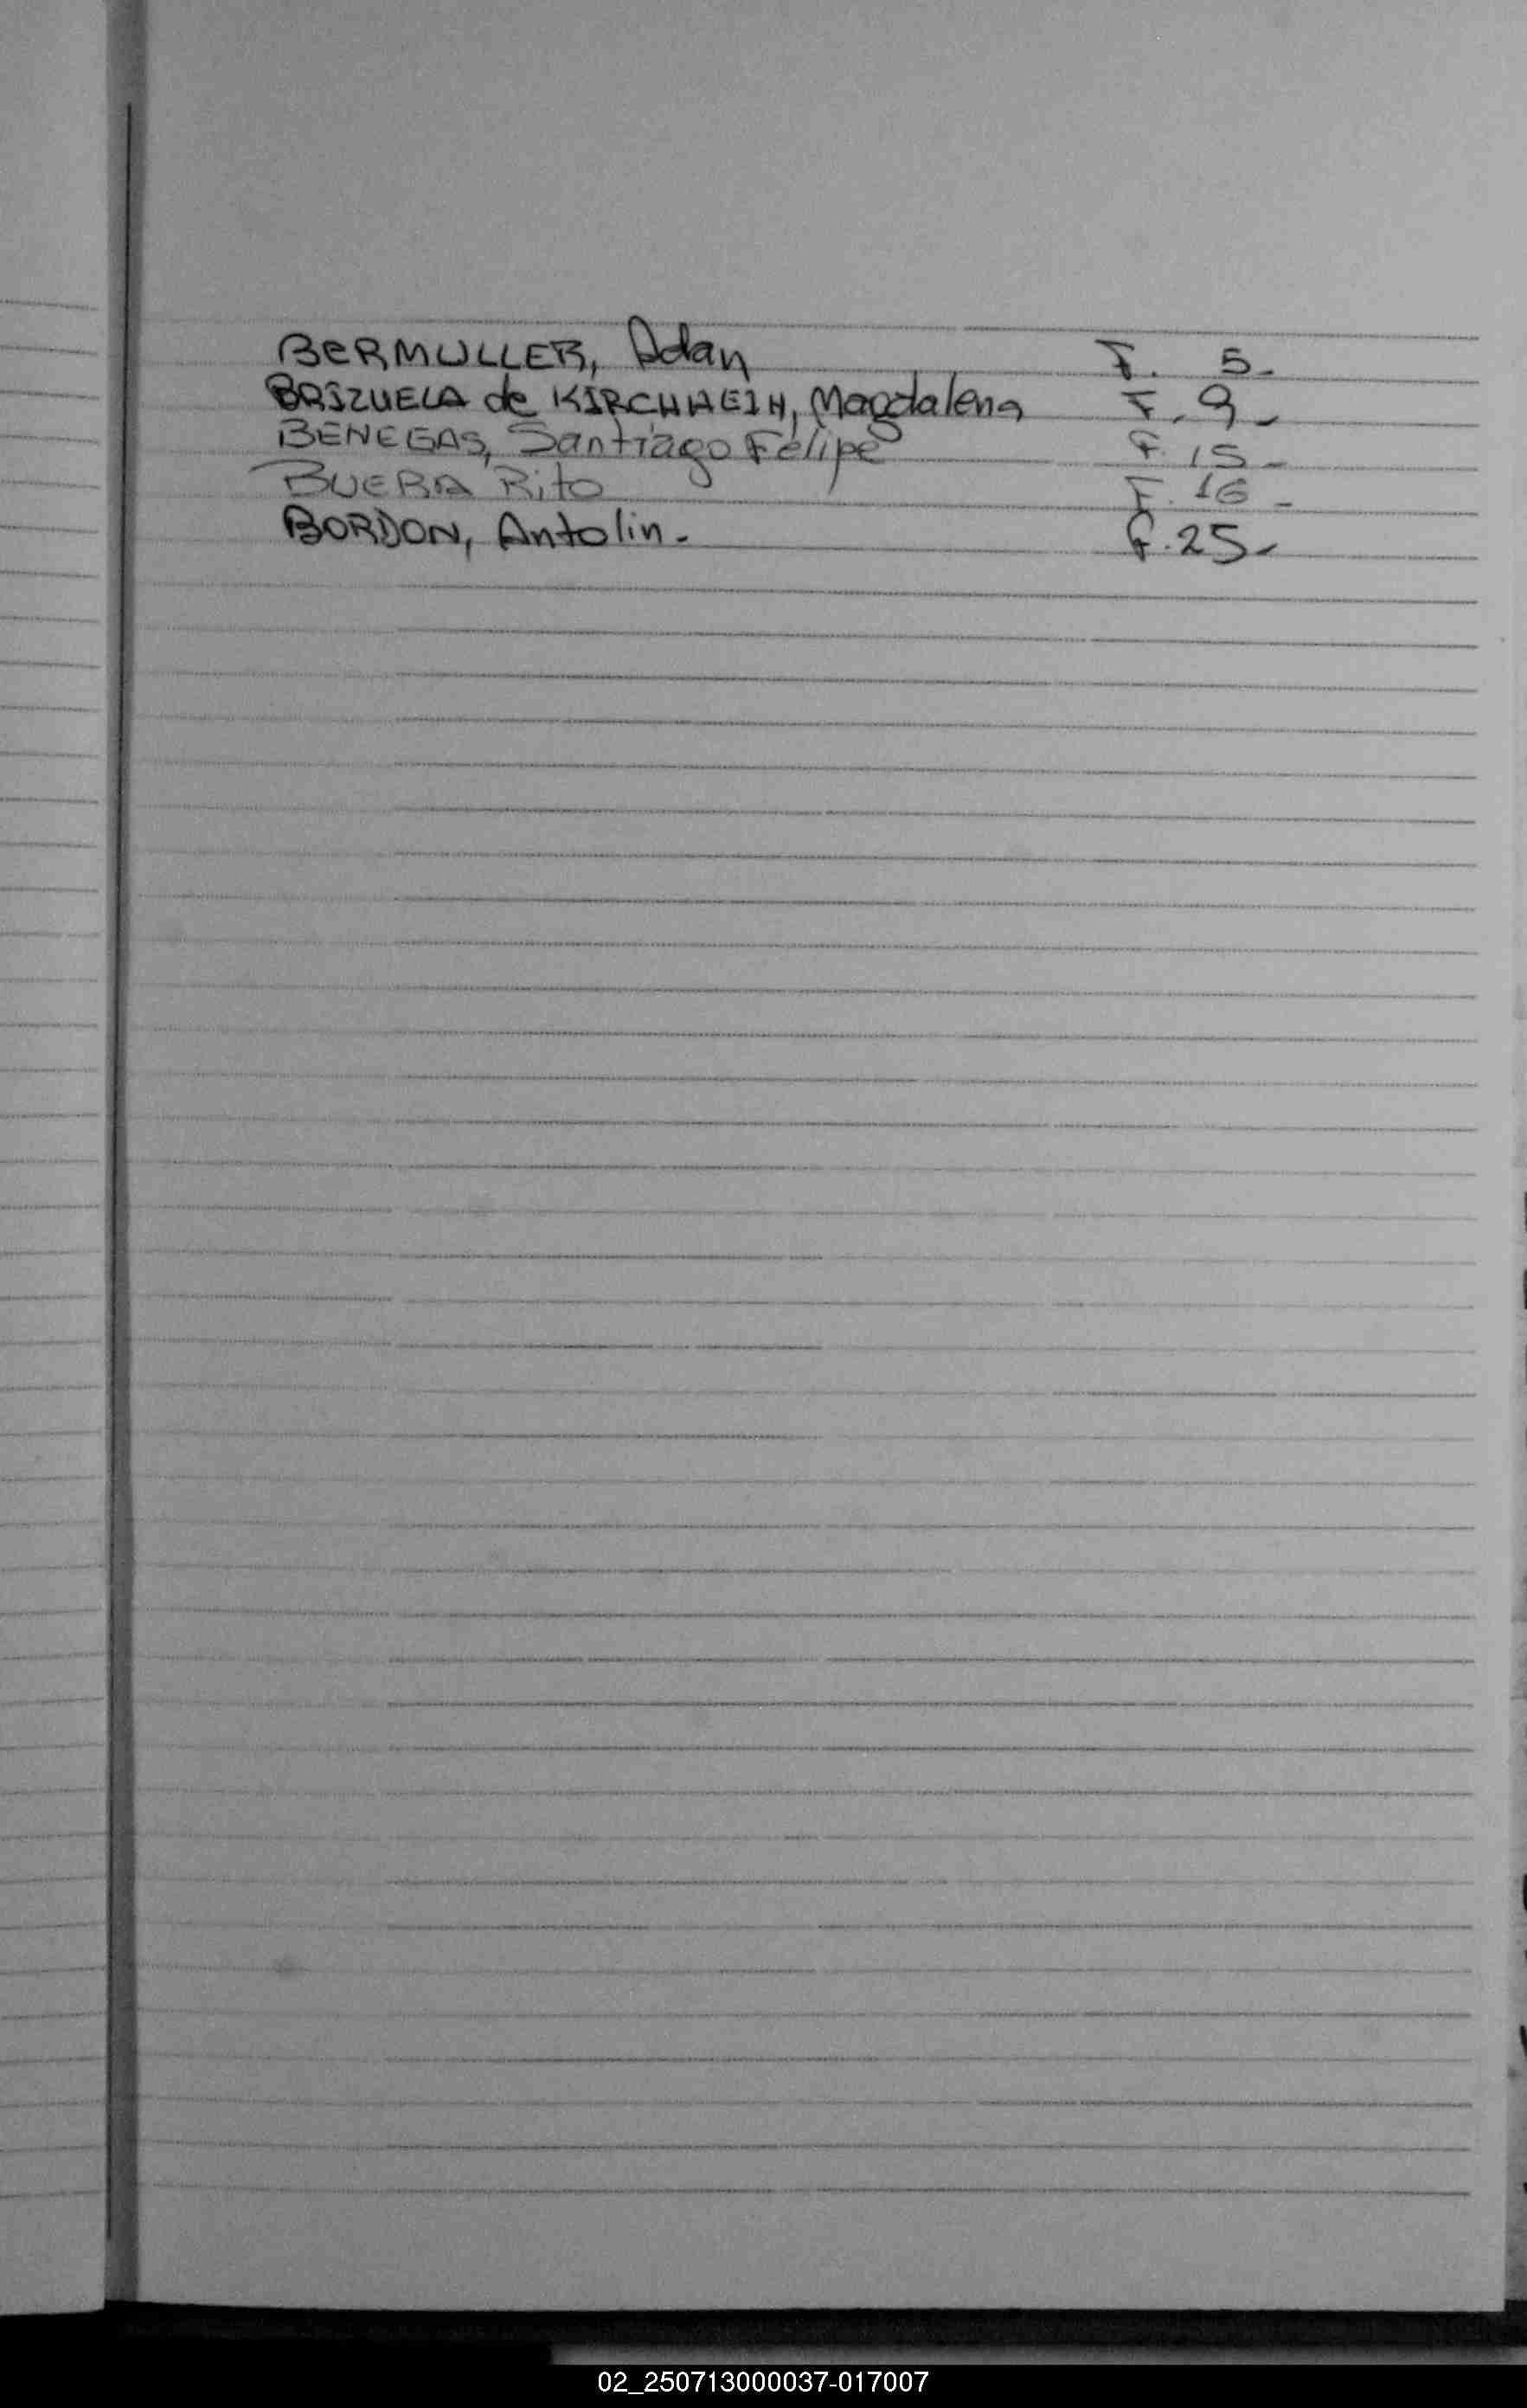 BERMULLER, Adan F. 5.-
BRIZUELA de KIRCHHEIH, Magdalena F. 9.-
BENEGAS, Santiago Felipe F. 15.-
BUERA Rito F. 16.-
BORDON, Antolin.- F. 25.-
02_250713000037-017007